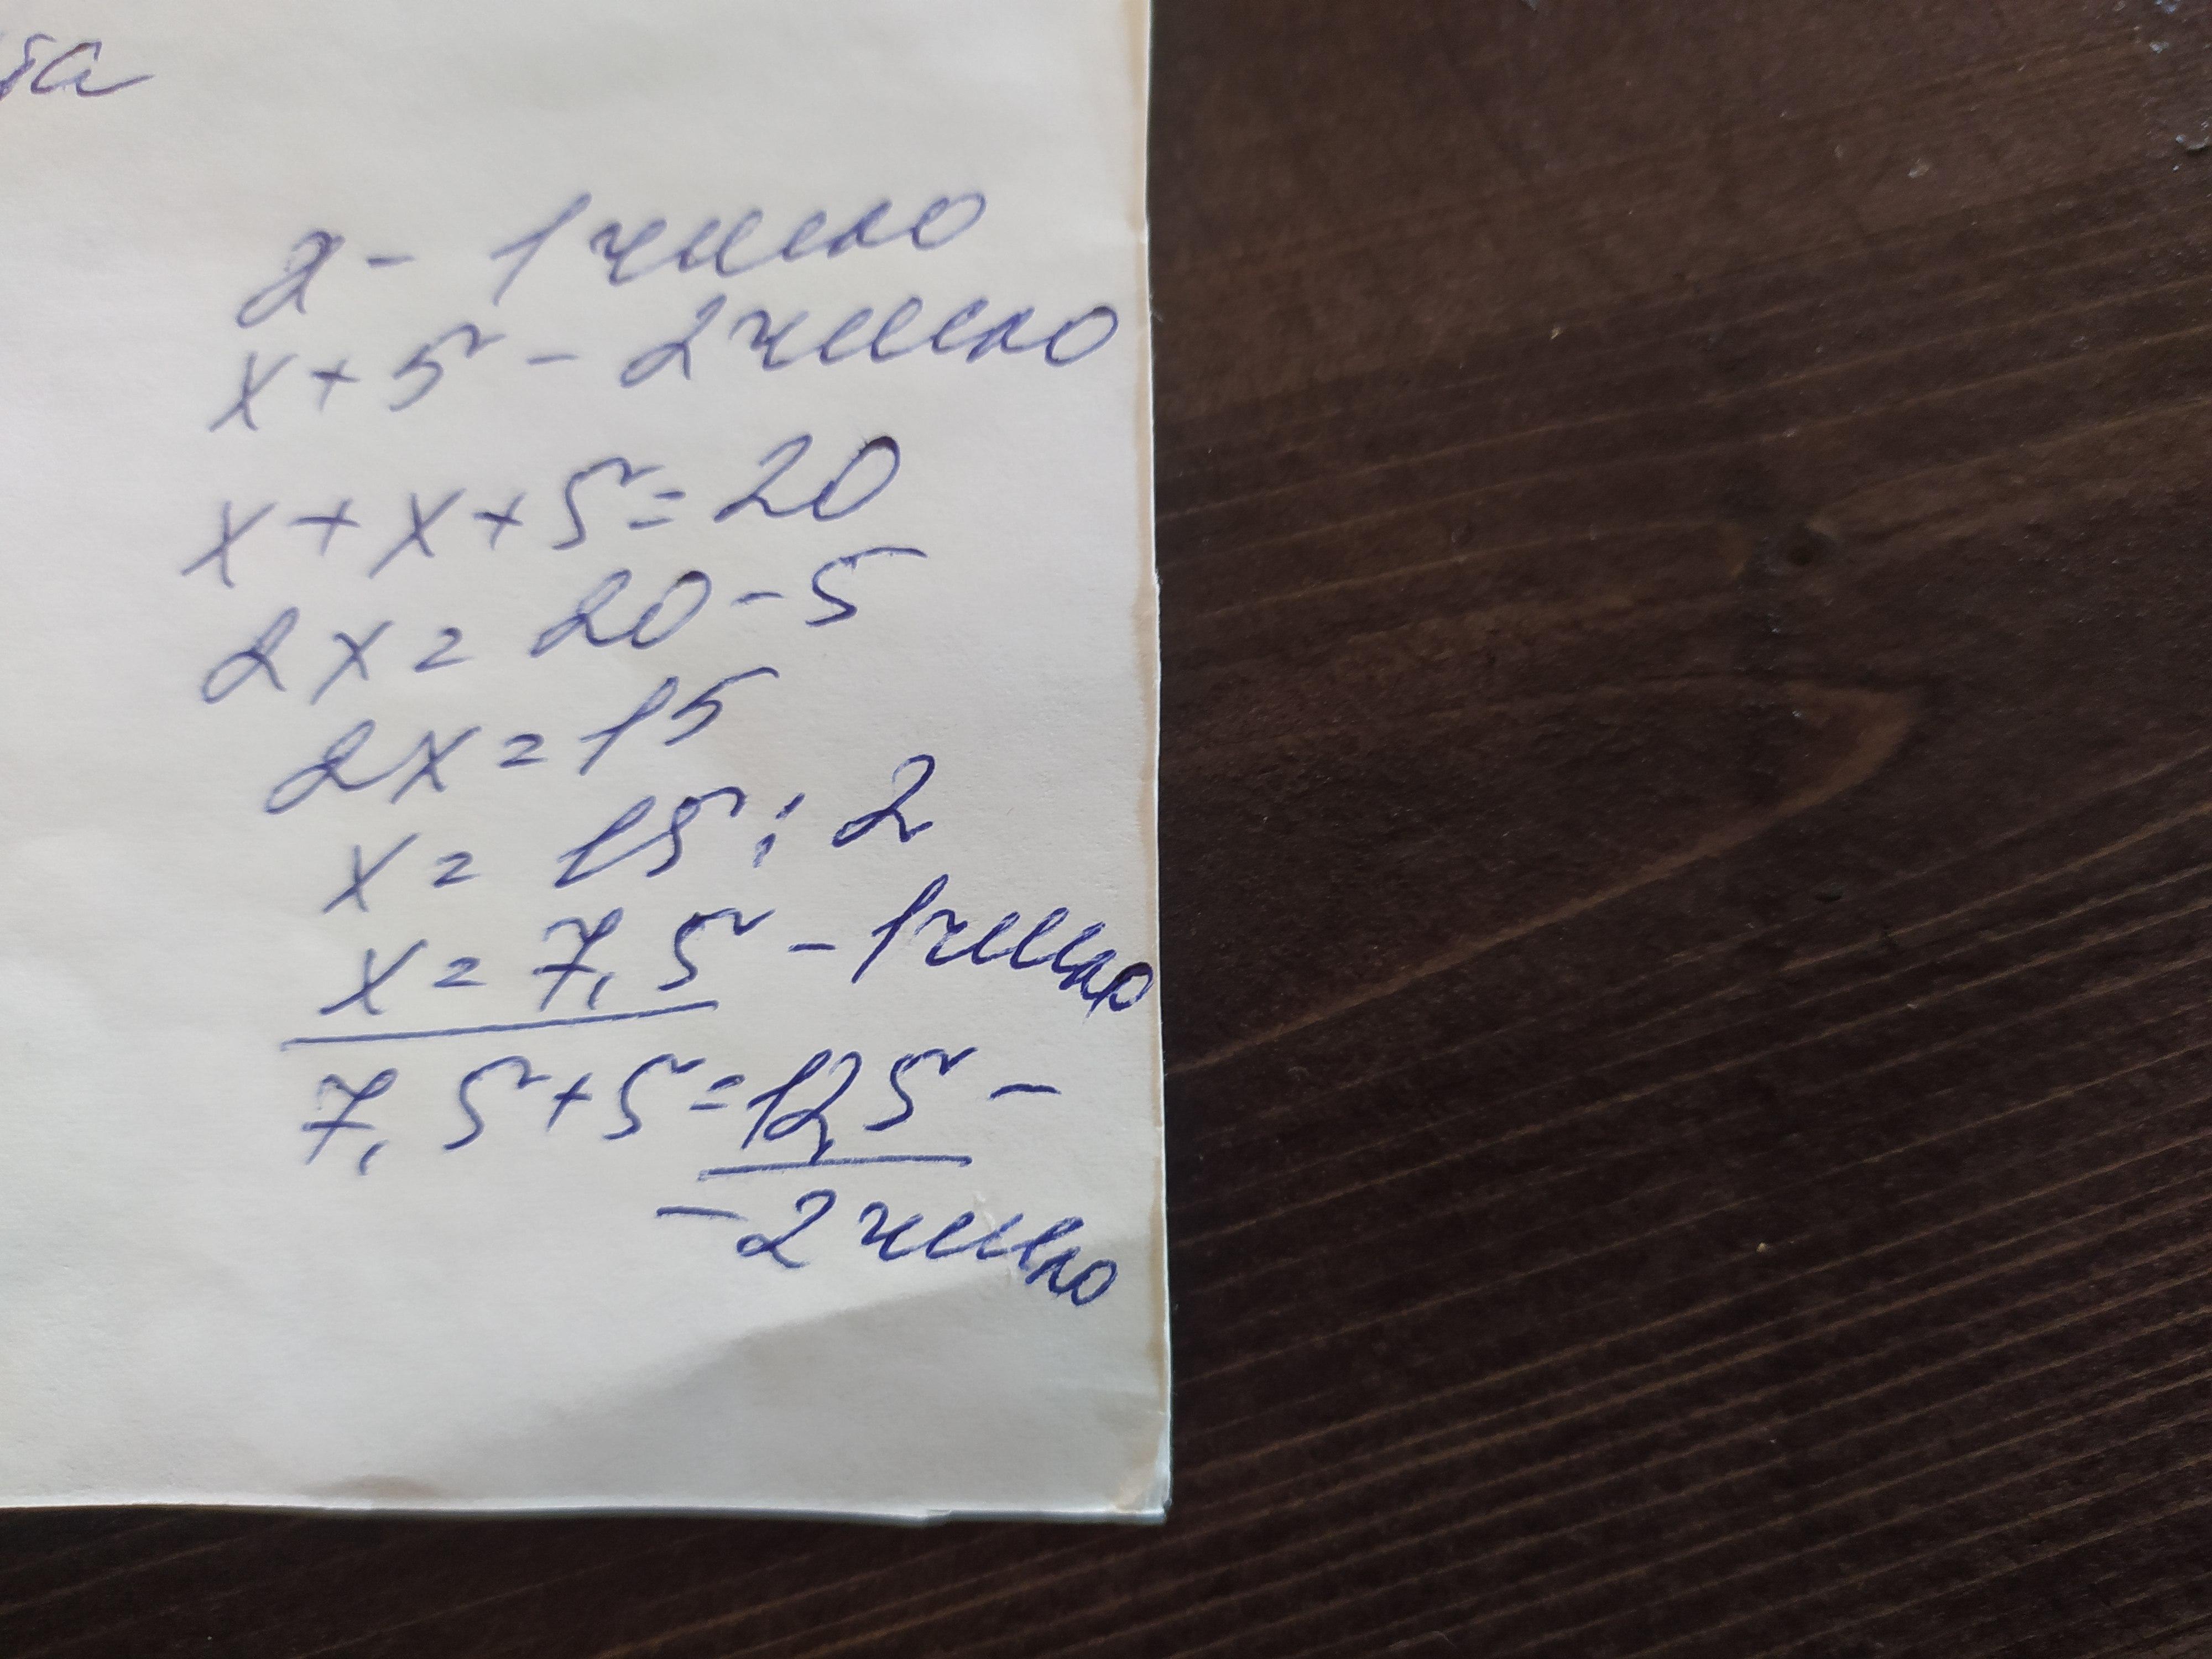 x - 1 число
x + 5 - 2 число
x + x + 5 = 20
2x = 20 - 5
2x = 15
x = 15 : 2
x = 7,5 - 1 число
7,5 + 5 = 12,5 -
- 2 число